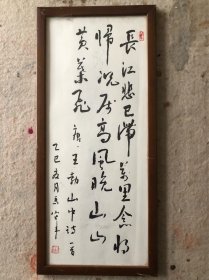 長江悲已滯萬里念將
歸況属高風晚山山
黄葉飛 唐王勃山中詩一首
乙巳夏月